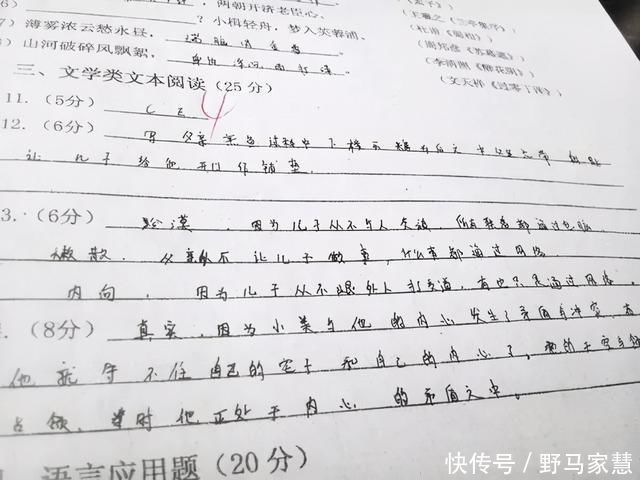 两朝开济老臣心。
小楫轻舟，梦入芙蓉浦。
7）薄雾浓云愁永昼，瑞脑消金兽。
8）山河破碎风飘絮，身世浮沉雨打萍。
王羲之《兰亭集序》）
（杜甫《蜀相》）
（周邦彦《苏幕遮》）
（李清照《醉花阴》）
（文天祥《过零丁洋》）
三、文学类文本阅读（25分）
11.（5分）C E
4
12.（6分）写父亲
让儿子给他开门作铺垫.
3.（6分）冷漠，因为儿子从不与人交谈，所有联系都通过电脑
懒散.父亲从不让儿子做事，什么事都通过网络
内向，因为儿子从不跟外人打交道，有也只是通过网络.
.（8分）真实.因为小美与他的内心发生了矛盾与冲突，
他就守不住自己的 和自己的内心了，
占领，当时他正处于内心的矛盾之中.
语言应用题（20分）
快传号/野马家慧